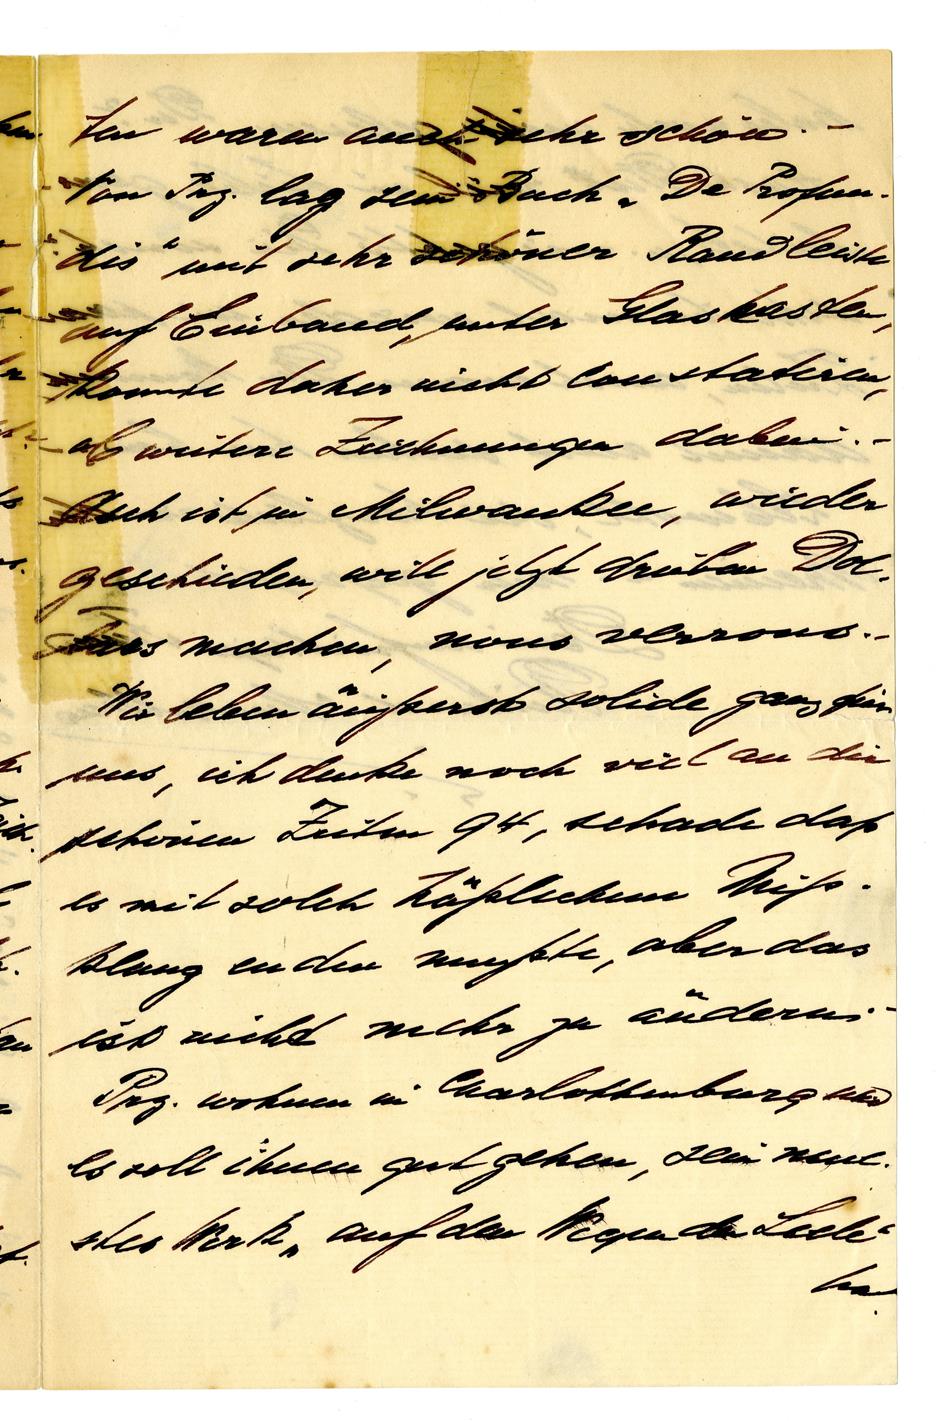 ten waren auch sehr schön. –
Von Prz. lag sein Buch „De Profun-
dis“ mit sehr schöner Randleiste
auf Einband, unter Glaskasten,
konnte daher nicht constatiren,
ob weitere Zeichnungen dabei. –
Asch ist in Milwaukee, wieder
geschieden, will jetzt drüben Dol-
lars machen, nous verrons. –
Wir leben äußerst solide ganz für
uns, ich denke noch viel an die
schönen Zeiten 94, schade daß
es mit solch häßlichem Miß-
klang enden mußte, aber das
ist nicht mehr zu ändern. –
Prz. wohnen in Charlottenburg und
es soll ihnen gut gehen, sein neue-
stes Werk „auf den Wegen der Seele“